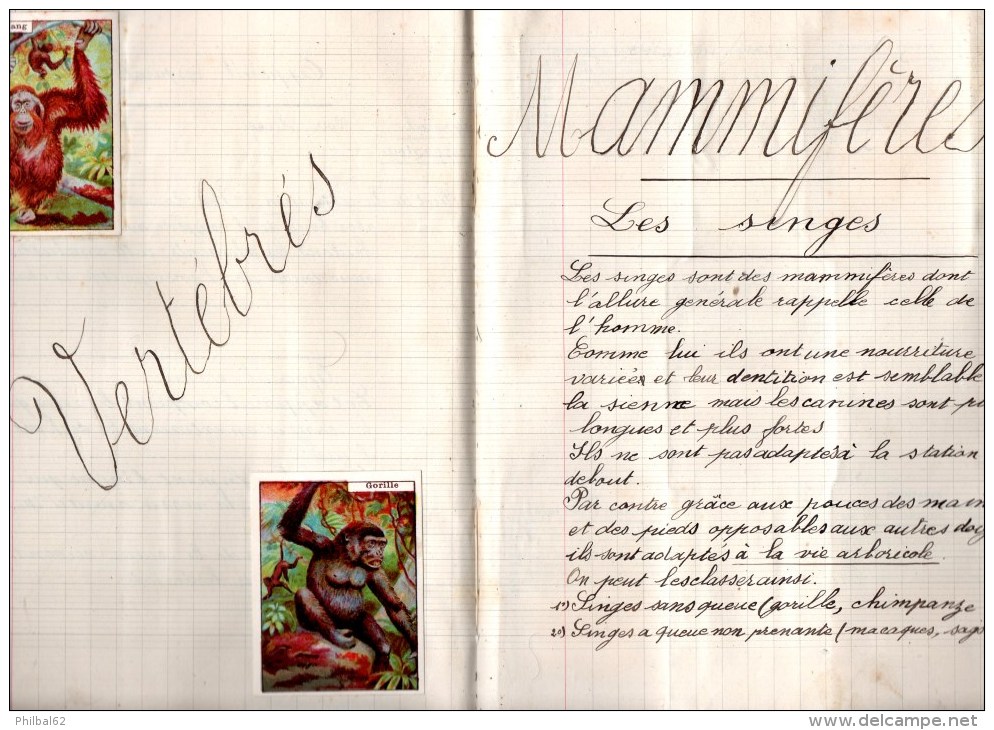 ang
Vertébrés
Gorille
Mammifères
Les singes
Les singes sont des mammifères dont
l'allure générale rappelle celle de
l'homme.
Comme lui ils ont une nourriture
variées et leur dentition est semblable
la sienne mais les canines sont pl
longues et plus fortes
Ils ne sont pas adaptés à la station
debout.
Par contre grâce aux pouces des main
et des pieds opposables aux autres doig
ils sont adaptés à la vie arboricole.
On peut les classer ainsi.
1º) Singes sans queue (gorille, chimpanze
2º) Singes a queue non prenante (macaques, sag
Philbal62
www.delcampe.net